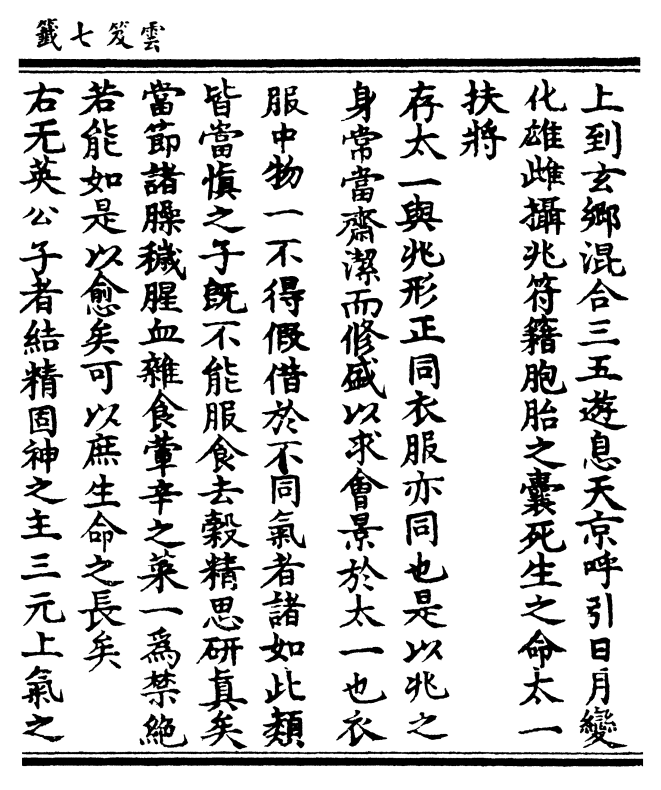 雲笈七籤
上到玄鄉混合三五遊息天京呼引日月變
化雄雌攝兆符籍胞胎之囊死生之命太一
扶將
存太一與兆形正同衣服亦同也是以兆之
身常當齋潔而修盛以求會景於太一也衣
服中物一不得假借於不同氣者諸如此類
皆當慎之子旣不能服食去穀精思硏眞矣
當節諸臊穢腥血雜食葷辛之菜一爲禁絶
若能如是以愈矣可以庶生命之長矣
右无英公子者結精固神之主三元上氣之